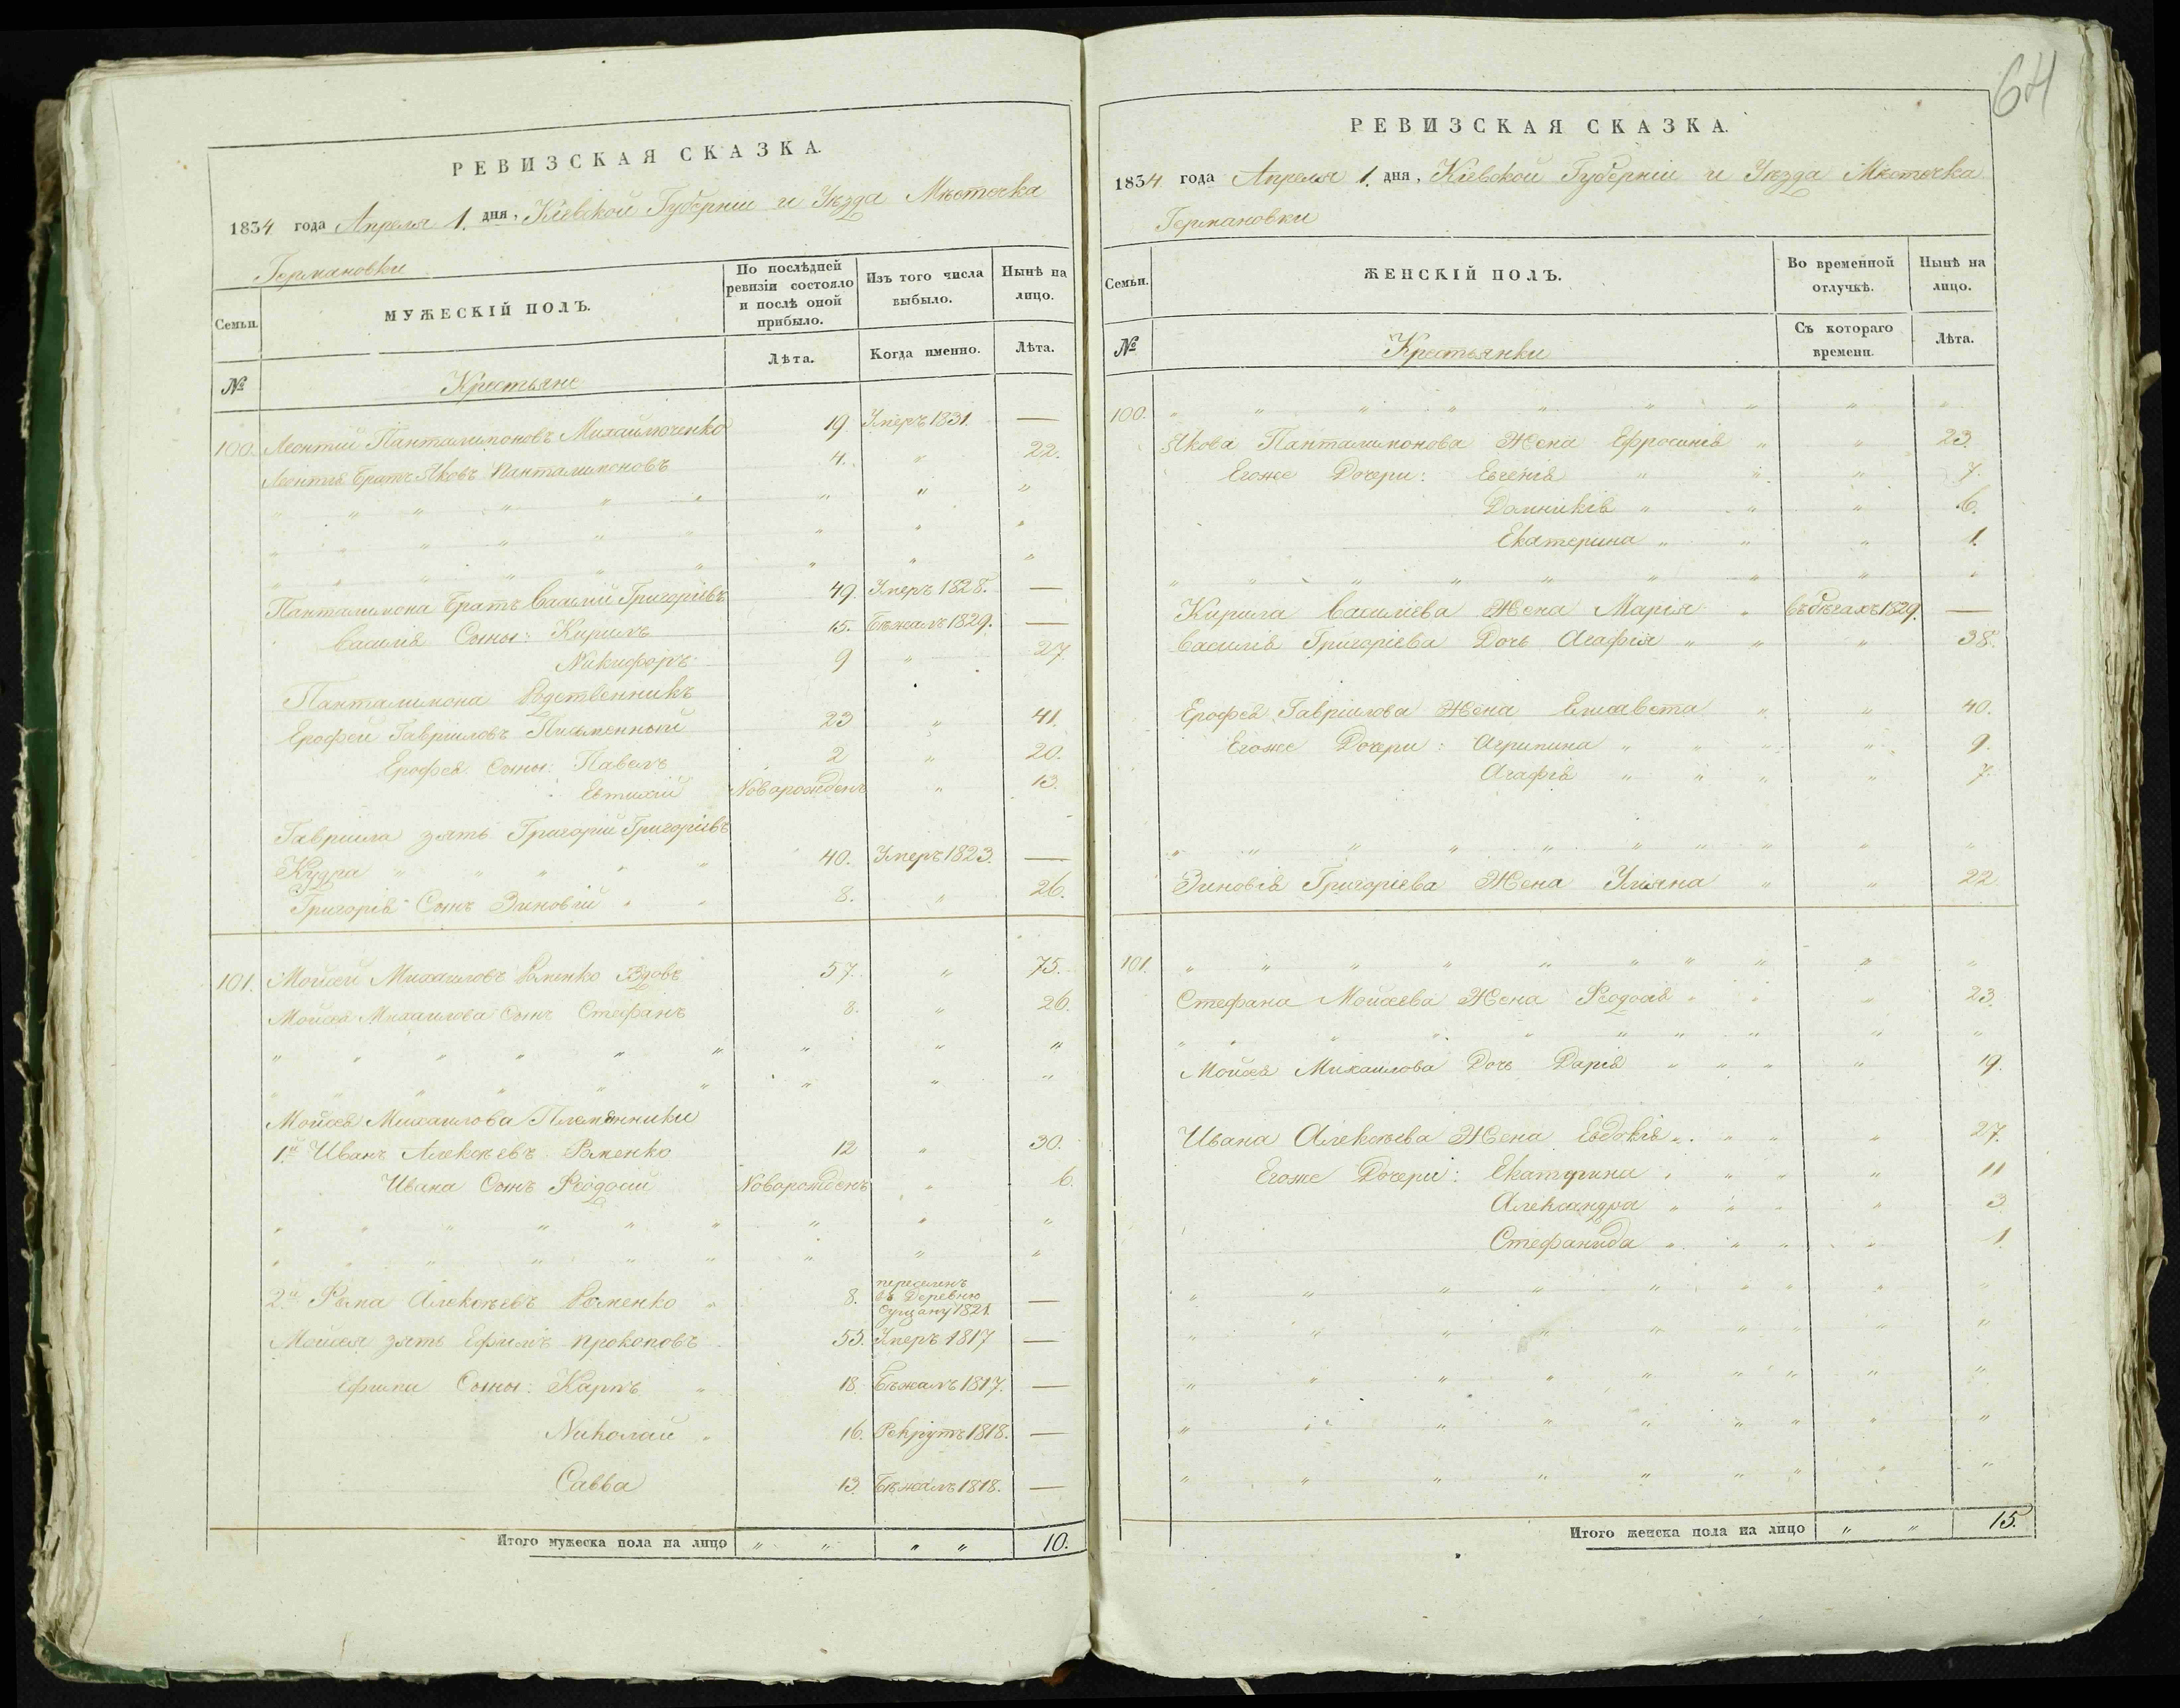 РЕВИЗСКАЯ СКАЗКА.
1834 года Апреля 1. дня, Кіевской Губерніи и Уѣзда Мѣсточка
Германовки
Семьи.
МУЖЕСКІЙ ПОЛЪ.
По послѣдней ревизіи состояло и послѣ оной прибыло.
Изъ того числа выбыло.
Нынѣ на лицо.
№
Крестьяне
Лѣта.
Когда именно.
Лѣта.
100. Леонтий Панталимоновъ Михайлюченко 19. Умеръ 1831. —
Леонтія братъ Яковъ Панталимоновъ 4. " 22.
" " " " " " " " "
" " " " " " " " "
" " " " " " " " "
Панталимона братъ Василий Григоріевъ 49. Умеръ 1828. —
Василія Сыны: Кирилъ 15. Бѣжалъ 1829. —
Никифоръ 9 " 27.
Панталимона Родственникъ
Ерофей Гавриловъ Письменный 23 " 41.
Ерофея Сыны: Павелъ 2 " 20.
Евтихий Новорожденъ " 13.
Гавриила зять Григорий Григоріевъ
Кудра " " " " " 40. Умеръ 1823. —
Григорія Сынъ Зиновій " " 8. " 26.
101. Мойсей Михаиловъ Роменко Вдовъ 57. " 75.
Мойсея Михаилова Сынъ Стефанъ 8. " 26.
" " " " " " " " "
" " " " " " " " "
Мойсея Михаилова Племянники
1й Иванъ Алексѣевъ Роменко 12 " 30.
Ивана Сынъ Ѳеодосий Новорожденъ " 6.
" " " " " " " " "
" " " " " " " " "
2й Ѳома Алексѣевъ Роменко " 8. переселенъ въ Деревню 1821. —
Мойсея зять Ефимъ Прокоповъ 55. Умеръ 1817 —
Ефима Сыны: Карпъ " 18. Бѣжалъ 1817. —
Николай " 16. Рекрутъ 1818. —
Савва 13. Бѣжалъ 1818. —
Итого мужеска пола на лицо " " " " 10.
64
РЕВИЗСКАЯ СКАЗКА.
1834 года Апреля 1. дня, Кіевской Губерніи и Уѣзда Мѣсточка
Германовки
Семьи.
ЖЕНСКІЙ ПОЛЪ.
Во временной отлучкѣ.
Нынѣ на лицо.
№
Крестьянки
Съ котораго времени.
Лѣта.
100. " " " " " " " " "
Якова Панталимонова Жена Ефросинія " " 23.
Егоже Дочери: Евгенія " " " 7.
Домникія " " " 6.
Екатерина " " " 1.
" " " " " " " " "
Кирила Василіева Жена Марія " въ бѣгахъ 1829. —
Василія Григоріева Дочь Агафія " " " 38.
Ерофея Гавриилова Жена Елисавета " " 40.
Егоже Дочери: Агрипина " " " " 9.
Агафія " " " " 7.
" " " " " " " " "
Зиновія Григоріева Жена Уліяна " " 22
101. " " " " " " " " " "
Стефана Мойсеева Жена Ѳеодосія " " " 23.
" " " " " " " " "
Мойсея Михаилова Дочь Дарія " " " " 19.
Ивана Алексѣева Жена Евдокія " " " " 27.
Егоже Дочери: Екатерина " " " " 11
Александра " " " " 3
Стефанида " " " " 1.
" " " " " " " " "
" " " " " " " " "
" " " " " " " " "
" " " " " " " " "
" " " " " " " " "
Итого женска пола на лицо " " 15.